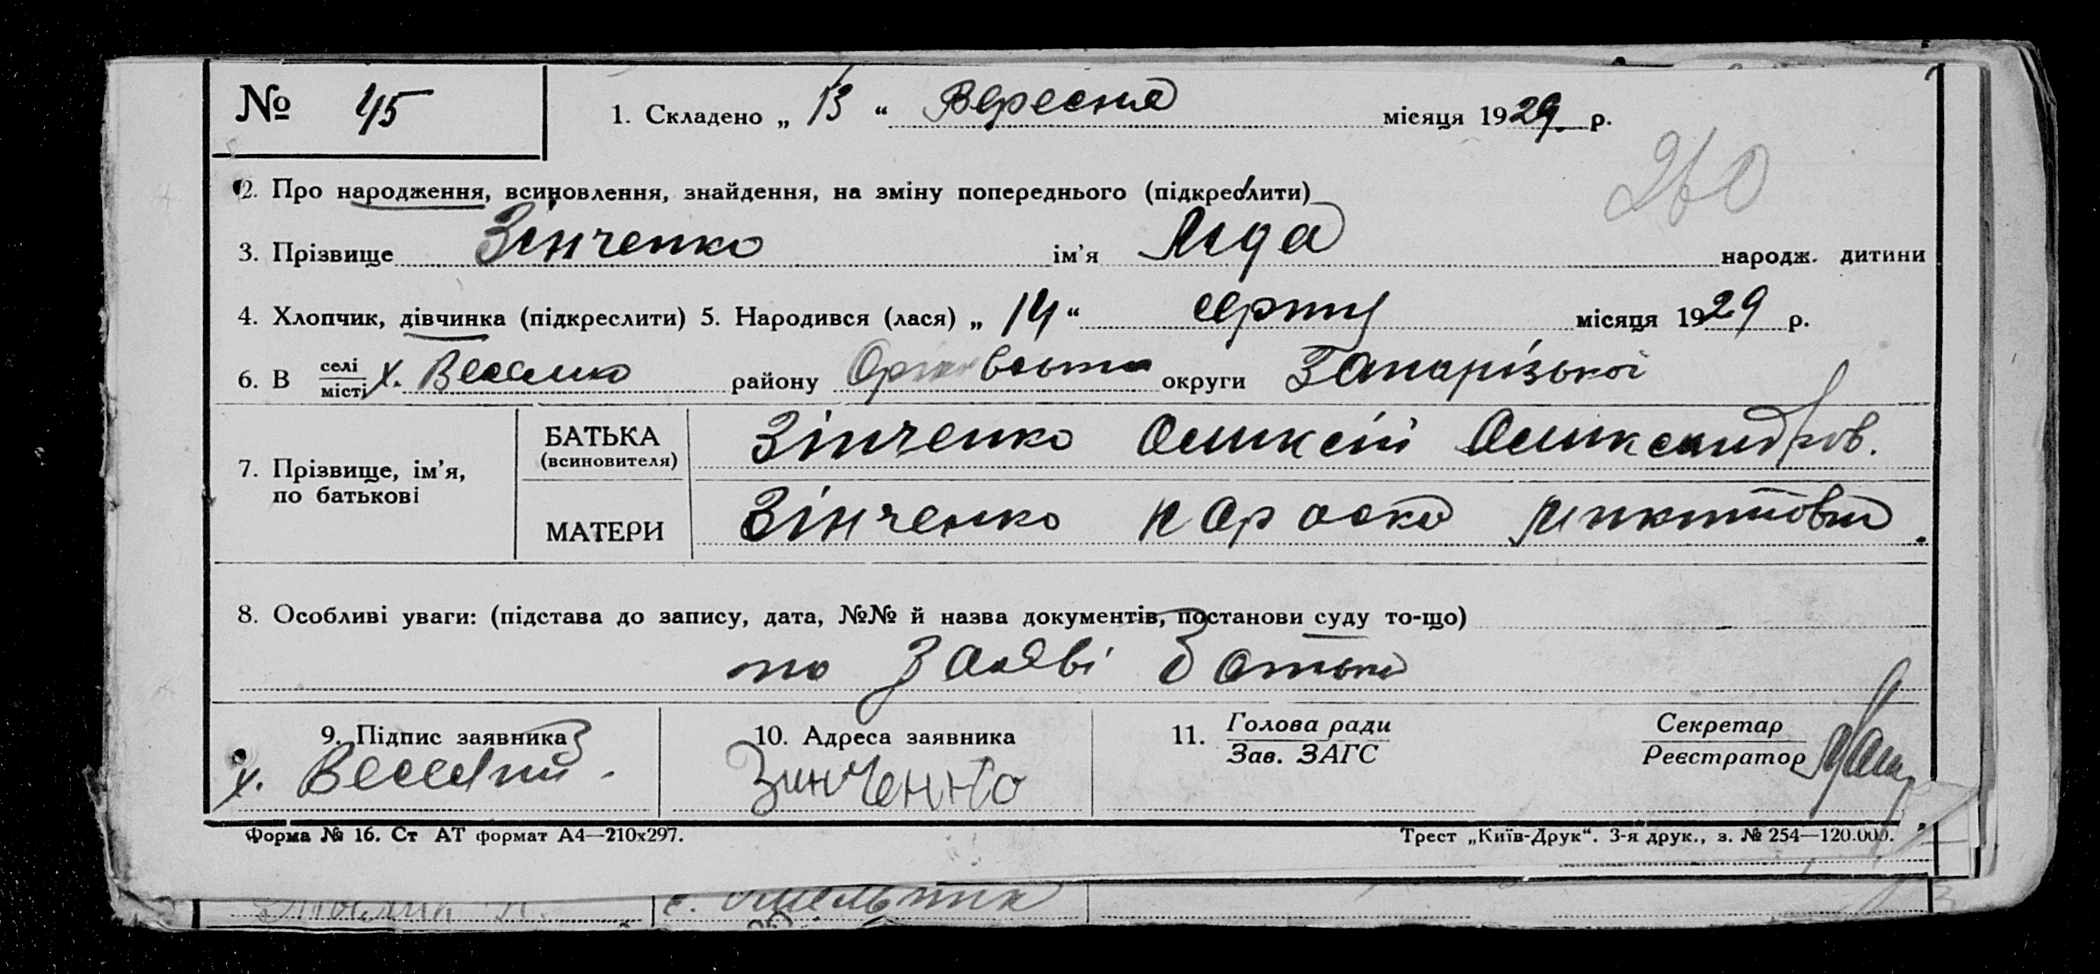 № 45
1. Складено „ 13 “ Вересня місяця 1929 р.
260
2. Про народження, всиновлення, знайдення, на зміну попереднього (підкреслити)
3. Прізвище Зінченко ім’я Ліда народж. дитини
4. Хлопчик, дівчинка (підкреслити) 5. Народився (лася) „ 14 “ серпня місяця 1929 р.
6. В селі місті х. Веселию району округи Запорізької
7. Прізвище, ім’я, по батькові
БАТЬКА (всиновителя) Зінченко Оликсій Оликсандров.
МАТЕРИ Зінченко Параска Микитовна.
8. Особливі уваги: (підстава до запису, дата, №№ й назва документів, постанови суду то-що)
по Заяві батька
9. Підпис заявника
х. Веселий.
10. Адреса заявника
Зинченко
11. Голова ради Зав. ЗАГС
Секретар Реєстратор
Форма № 16. Ст АТ формат А4—210х297.
Трест „Київ-Друк“. 3-я друк., з. № 254—120.000.
с. Омельник